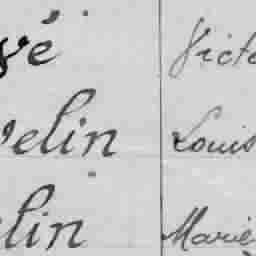 vé Victo
velin Louis
elin Marie